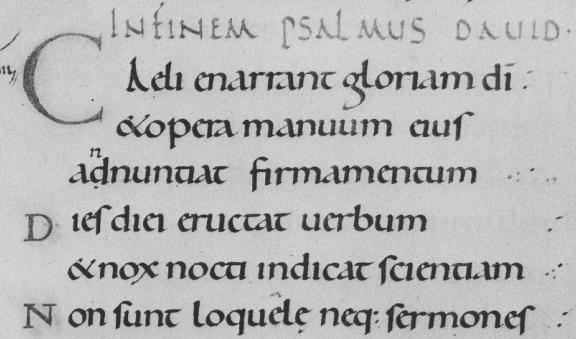 IN FINEM PSALMUS DAUID·
CAeli enarrant gloriam dī :
&opera manuum eiuſ
adnuntiat firmamentum
Dieſ diei eructat uerbum
&nox nocti indicat ſcientiam
Non ſunt loquelę neq: ſermoneſ